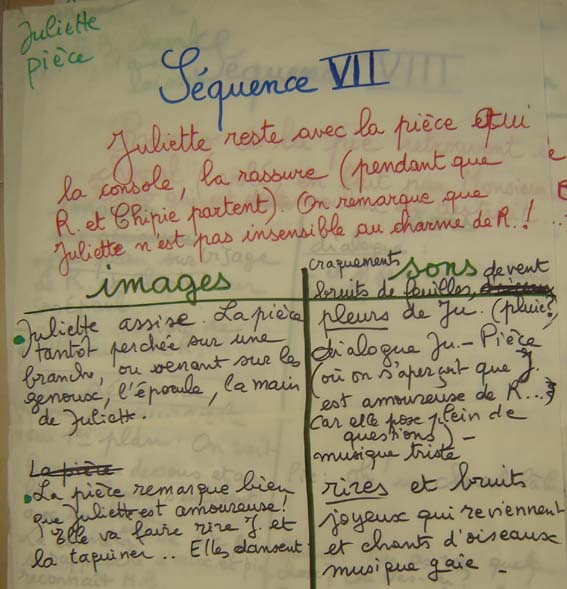 Juliette
pièce
Séquence VII
Juliette reste avec la pièce qui
la console, la rassure (pendant que
R. et Chipie partent). On remarque que
Juliette n'est pas insensible au charme de R.!
images
Juliette assise. La pièce
tantôt perchée sur une
branche, ou venant sur les
genoux, l'épaule, la main
de Juliette.
La pièce
La pièce remarque bien
que Juliette est amoureuse!
Elle va faire rire J. et
la taquiner.. Elles dansent
sons
craquements de vent
bruits de feuilles,
pleurs de Ju. (pluie?)
dialogue Ju. - Pièce
(où on s'aperçoit que J.
est amoureuse de R...
car elle pose plein de
questions) -
musique triste
rires et bruits
joyeux qui reviennent
et chants d'oiseaux
musique gaie -